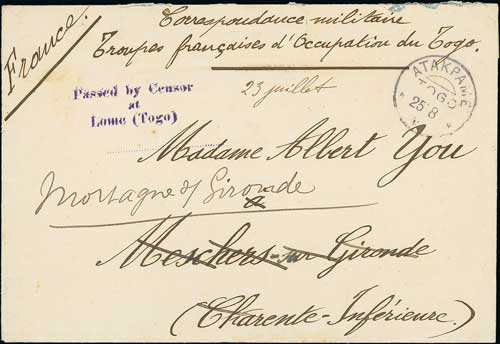 France.
Correspondance militaire
Troupes françaises d'Occupation du Togo.
23 juillet
Passed by Censor
at
Lome (Togo)
ATAKPAME
TOGO
25 8
Madame Albert You
Mortagne s/ Gironde
à
Meschers-sur Gironde
(Charente-Inférieure.)